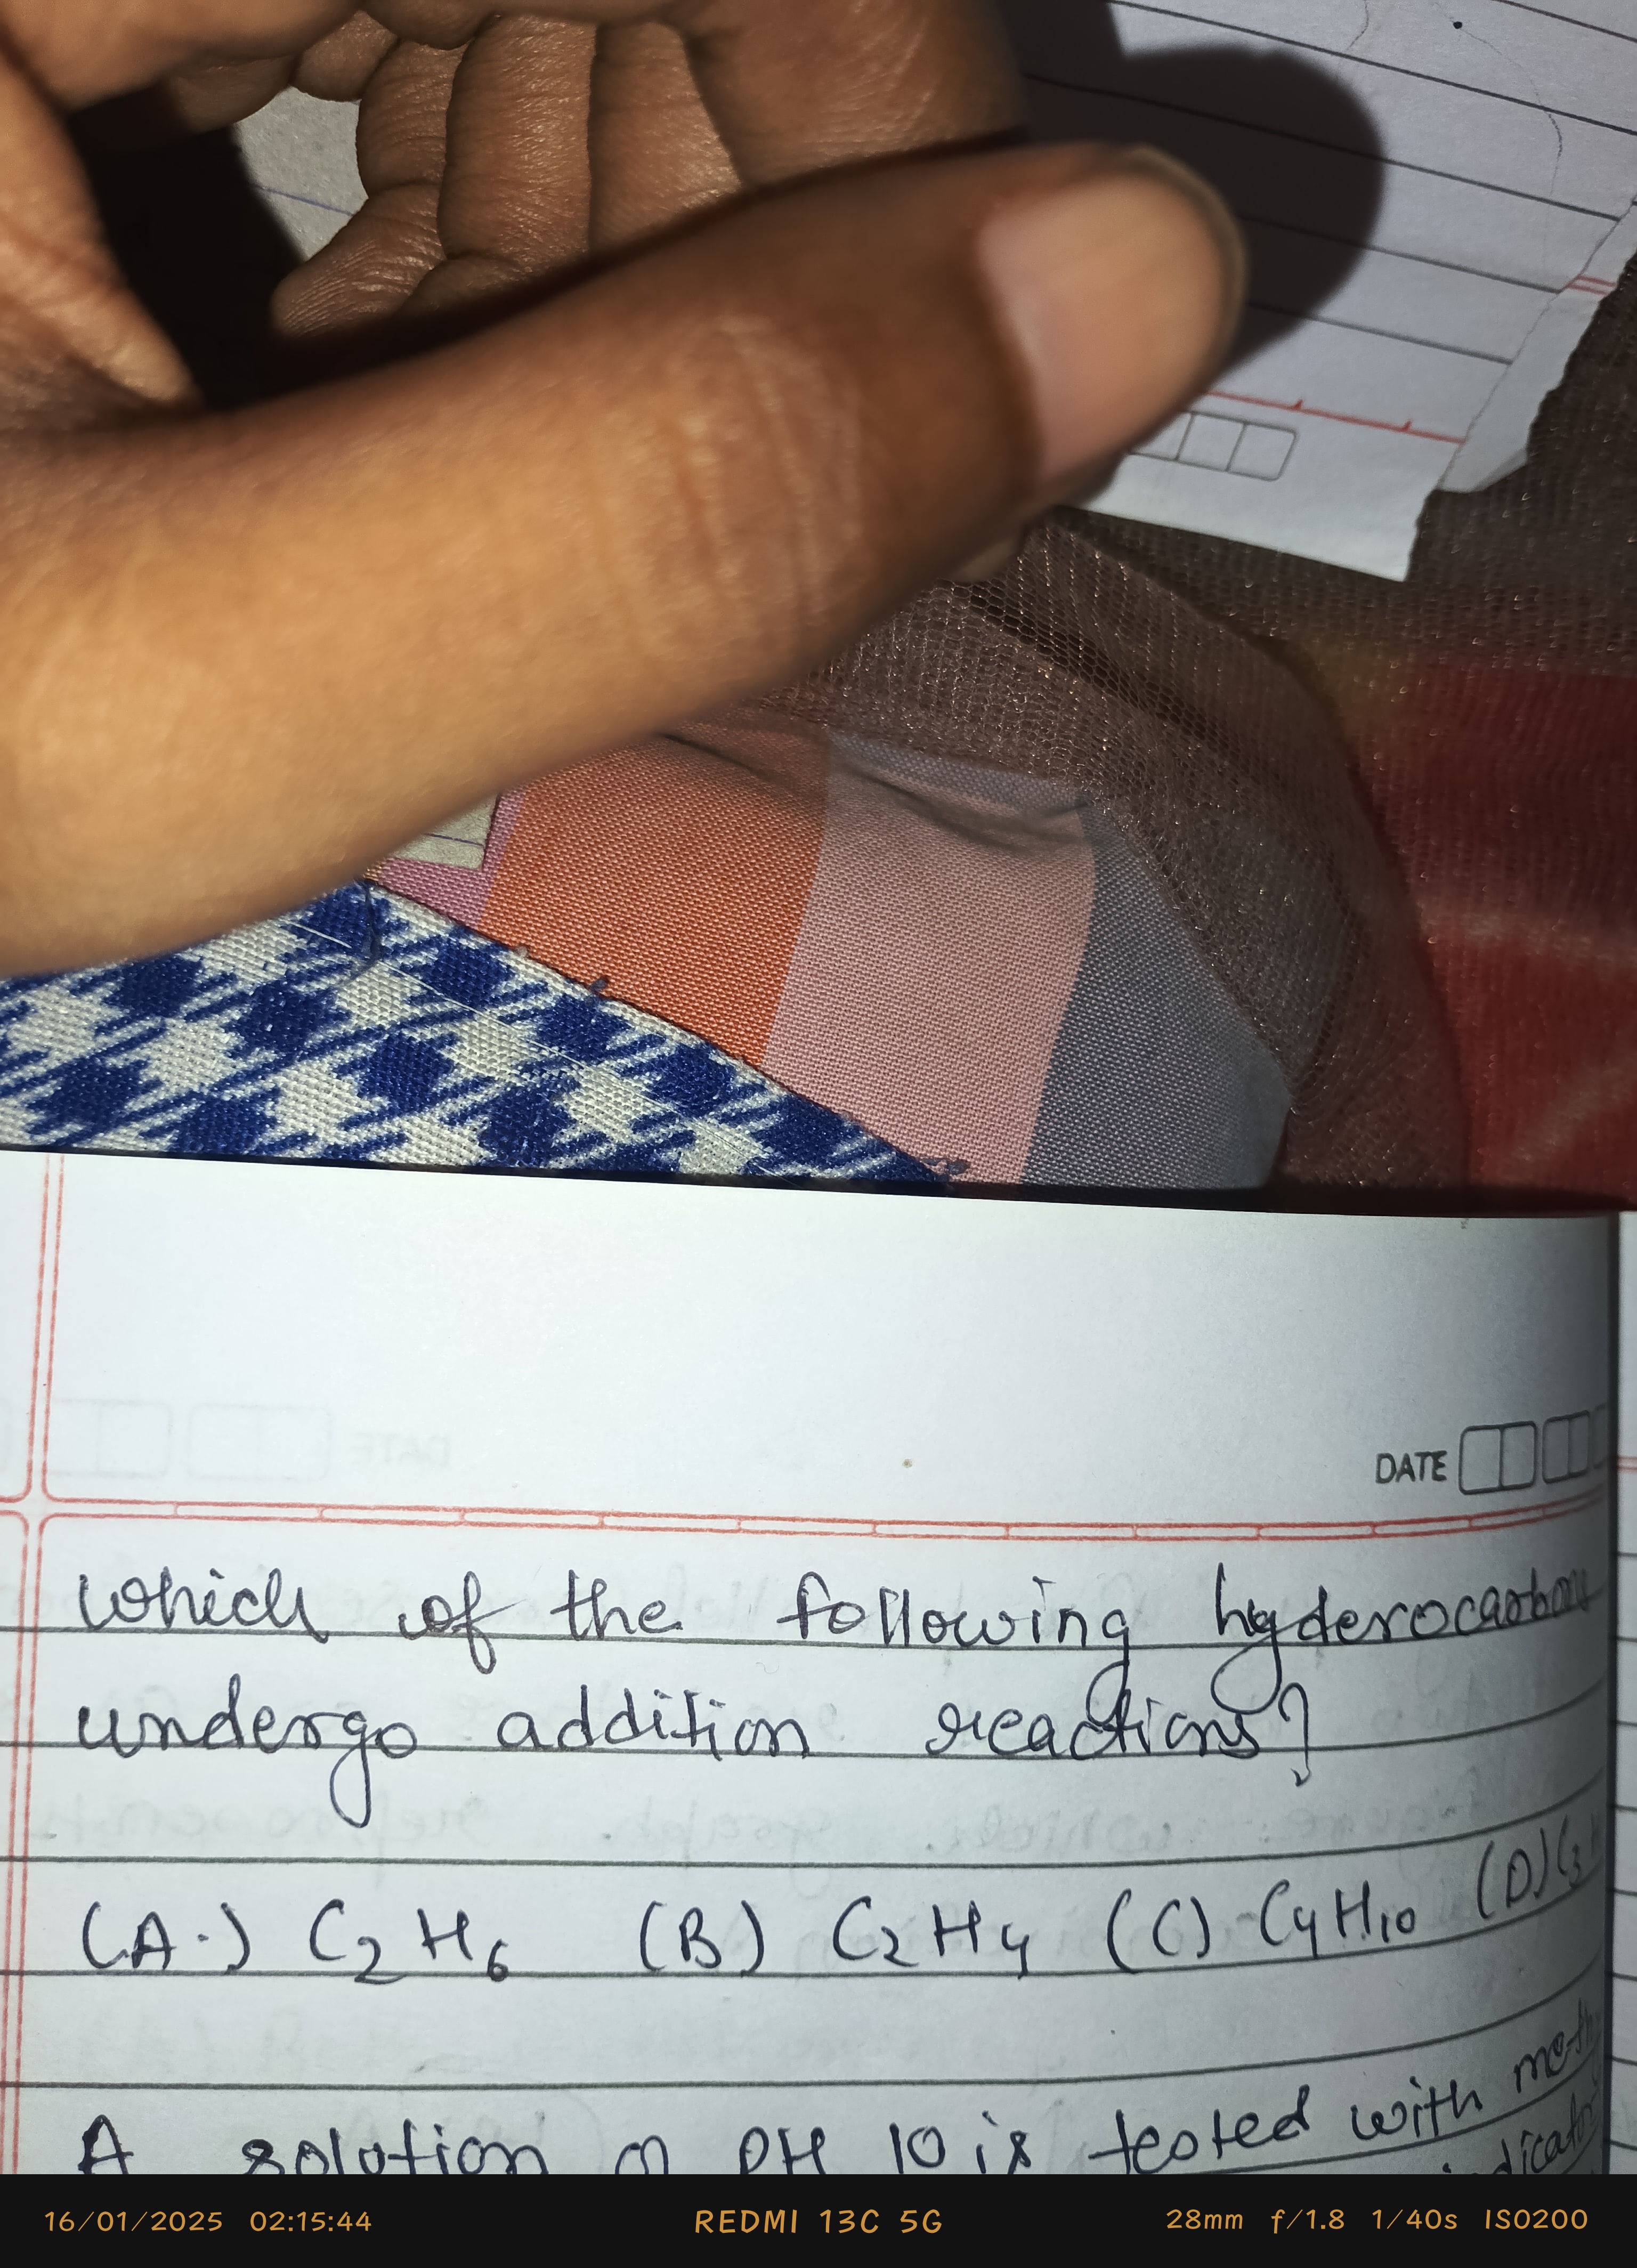 DATE
which of the following hyderocarbons
undergo addition reactions?
(A.) C2H6 (B) C2H4 (C) C4H10 (D) C3
A solution of PH 10 is tested with
16/01/2025 02:15:44 REDMI 13C 5G 28mm f/1.8 1/40s ISO200